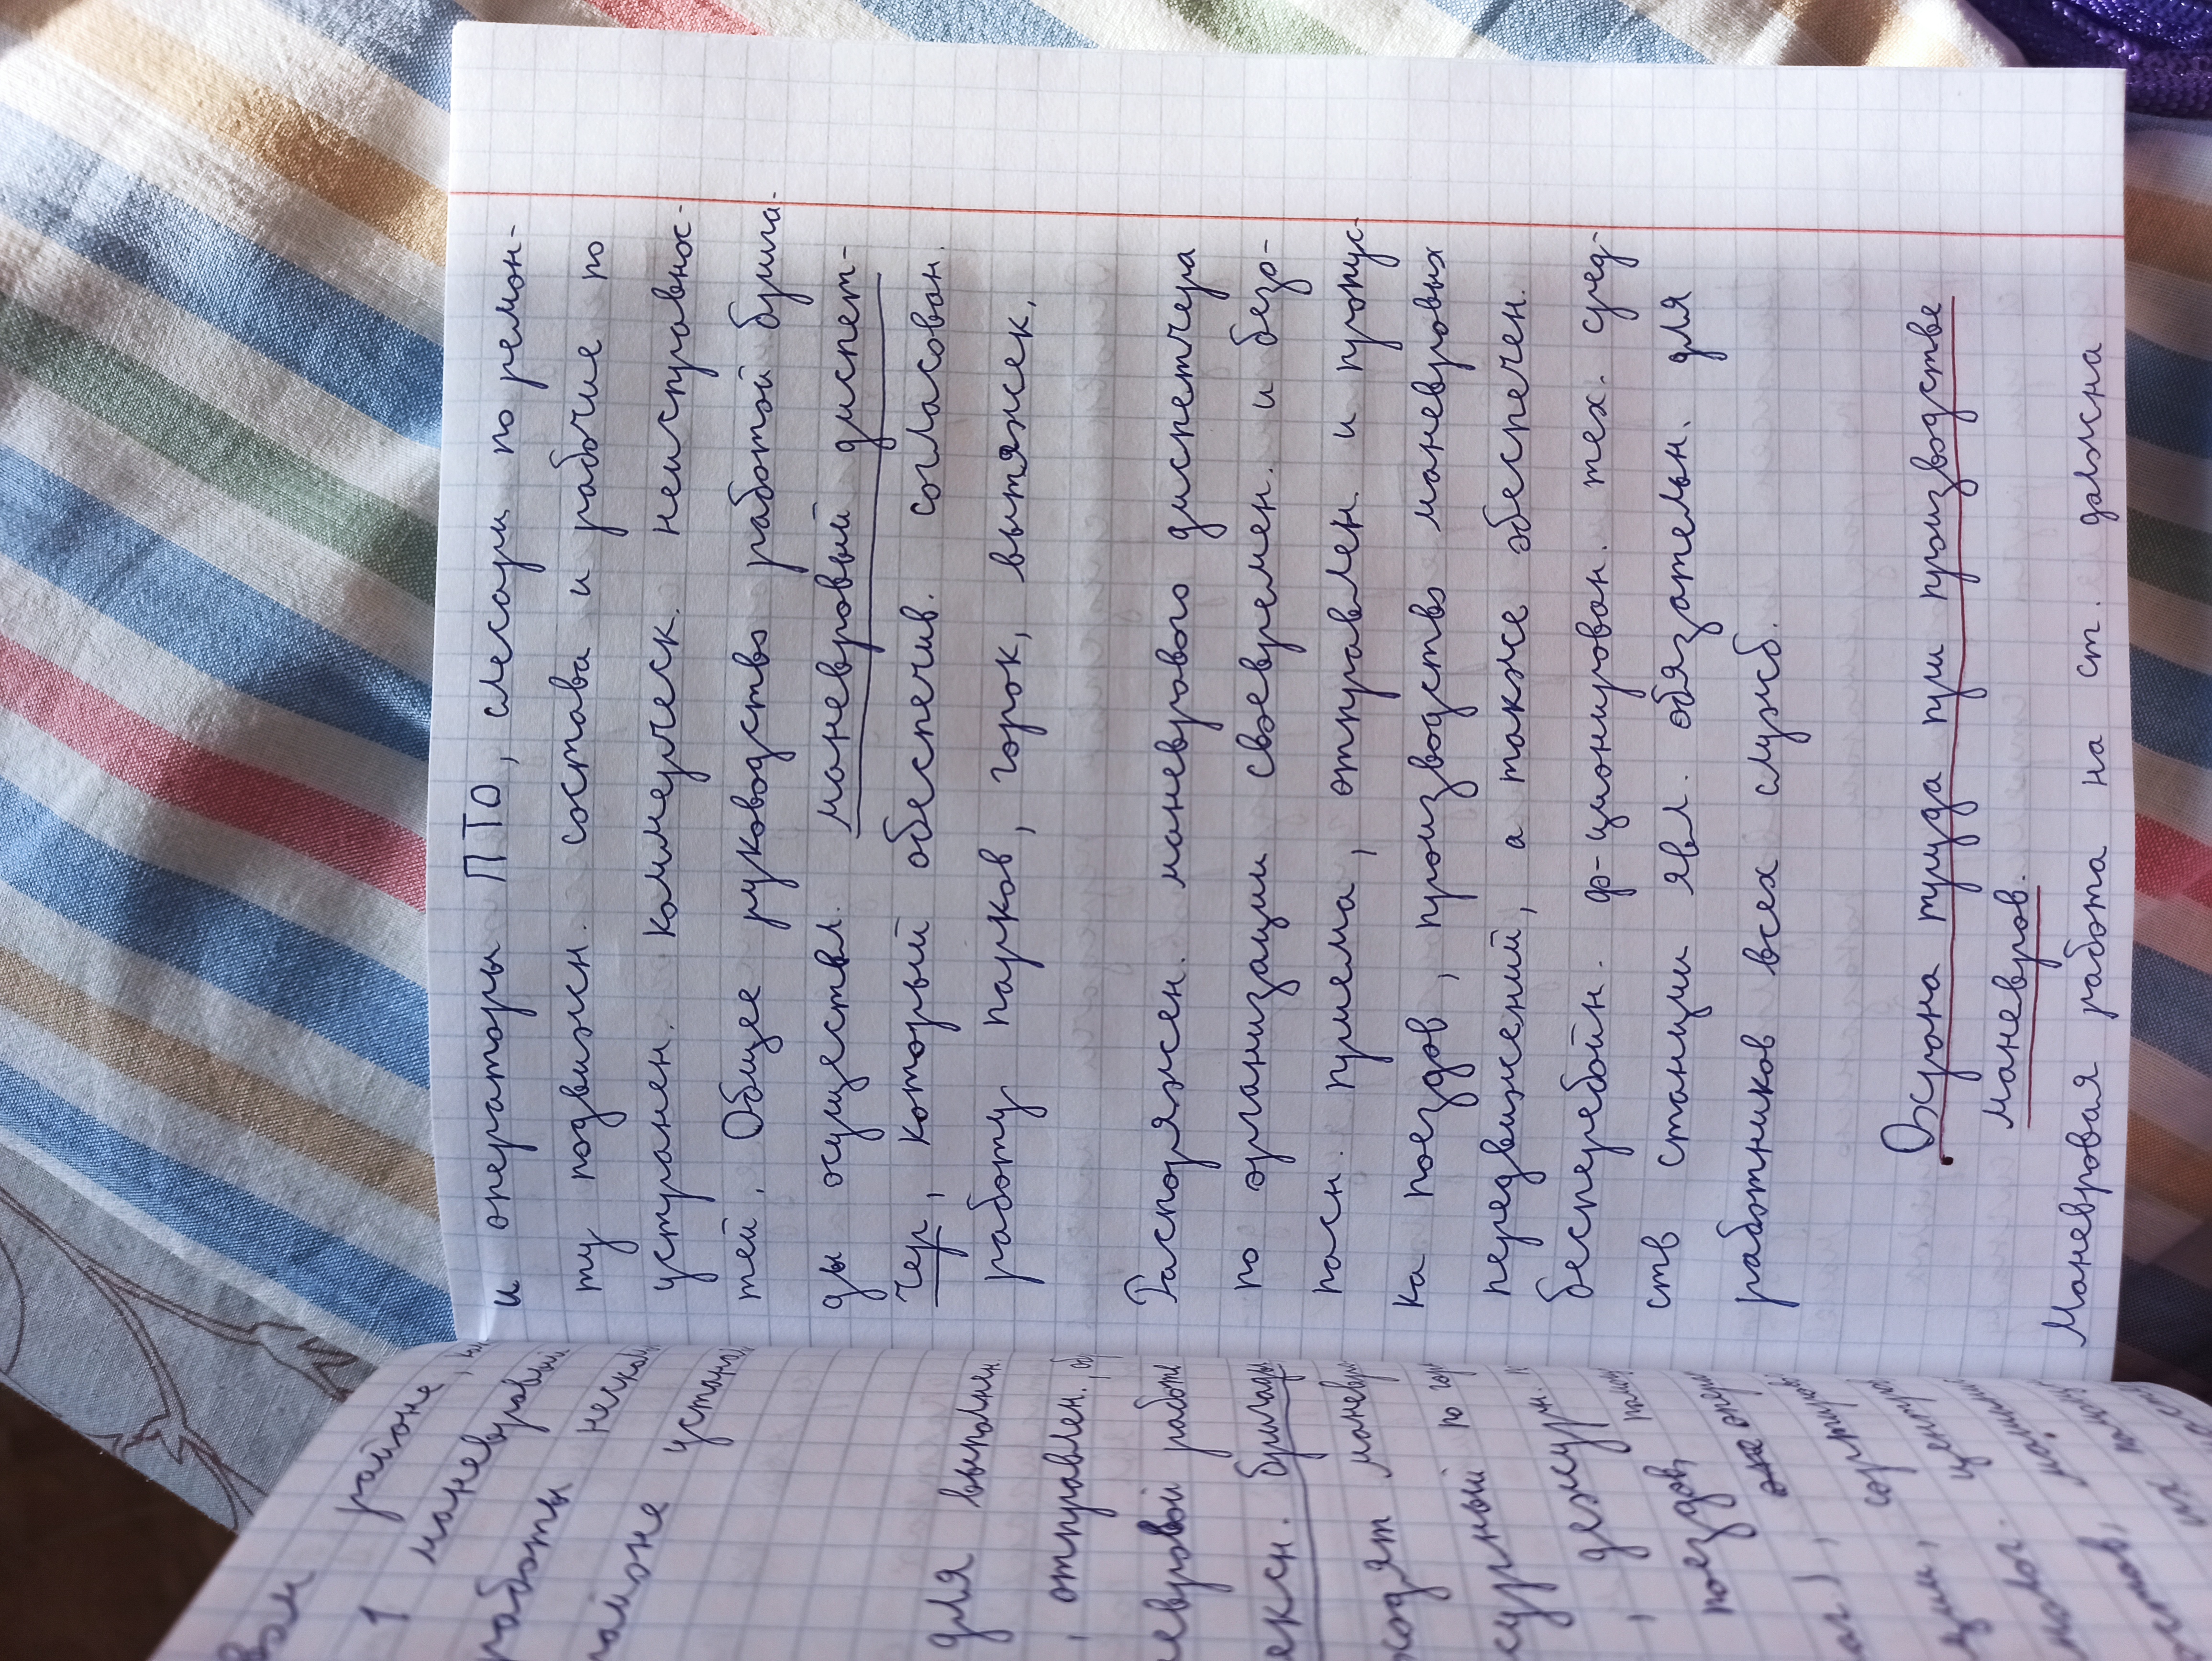 и операторы ПТО, слесари по ремон-
ту подвижн. состава и рабочие по
устранен. коммерческ. неисправнос-
тей. Общее руководство работой брига-
ды осуществл. маневровый диспет-
чер, который обеспечив. согласован.
работу парков, горок, вытяжек.
Распоряжен. маневрового диспетчера
по организации своевремен. и безо-
пасн. приема, отправлен. и пропус-
ка поездов, производство маневровых
передвижений, а также обеспечен.
бесперебойн. ф-ционирован. тех. сред-
ств станции явл. обязательн. для
работников всех служб.
Охрана труда при производстве
маневров.
Маневровая работа на ст. должна
районе
1 маневровый
работы
районе
для выполнен.
, отправлен.
работы
маневр
по
, дежур
поездов,